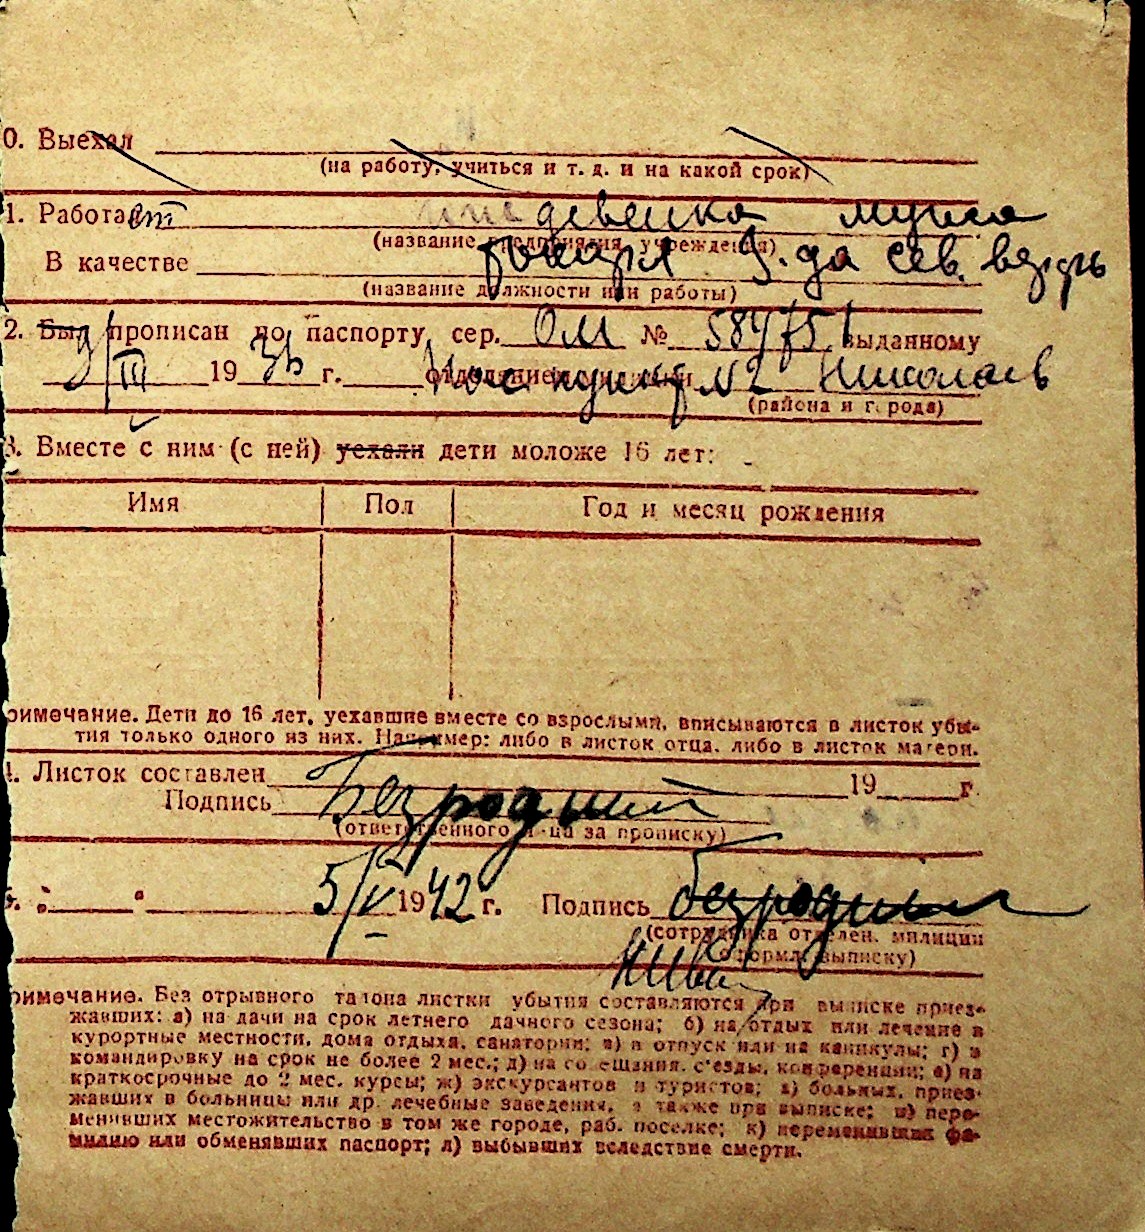 0. Выехал
(на работу, учиться и т. д. и на какой срок)
1. Работает иждивенка мужа
(название предприятия, учреждения)
В качестве сев. верфь
(название должности или работы)
2. Был прописан по паспорту сер. ОМ № 584751 выданному
9/III 1936 г. отделением милиции Пас пункт №2 Николаев
(района и города)
3. Вместе с ним (с ней) уехали дети моложе 16 лет: -
Имя Пол Год и месяц рождения
римечание. Дети до 16 лет, уехавшие вместе со взрослыми, вписываются в листок убы-
тия только одного из них. Например: либо в листок отца, либо в листок матери.
4. Листок составлен 19 г.
Подпись Безродный
(ответственного л-ца за прописку)
5. " " 5/V 1942 г. Подпись Безродный
(сотрудника отделен. милиции
оформл. выписку)
римечание. Без отрывного талона листки убытия составляются при выписке приез-
жавших: а) на дачи на срок летнего дачного сезона; б) на отдых или лечение в
курортные местности, дома отдыха, санатории; в) в отпуск или на каникулы; г) в
командировку на срок не более 2 мес.; д) на совещания, с'езды, конференции; е) на
краткосрочные до 2 мес. курсы; ж) экскурсантов и туристов; з) больных, приез-
жавших в больницы или др. лечебные заведения, а также при выписке; и) пере-
менивших местожительство в том же городе, раб. поселке; к) переменивших фа-
милию или обменявших паспорт; л) выбывших вследствие смерти.